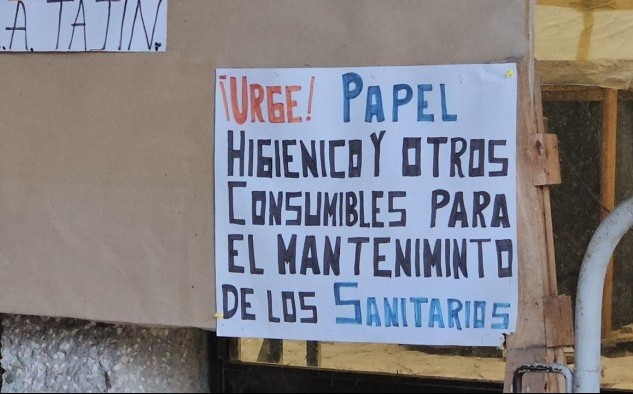 .A. TAJIN.
¡URGE! PAPEL
HIGIENICO Y OTROS
CONSUMIBLES PARA
EL MANTENIMINTO
DE LOS SANITARIOS